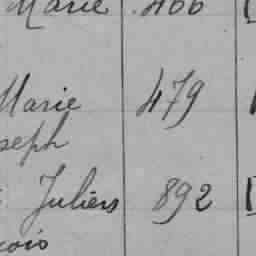 Marie 466
Marie 479
seph
Juliers 892
çois